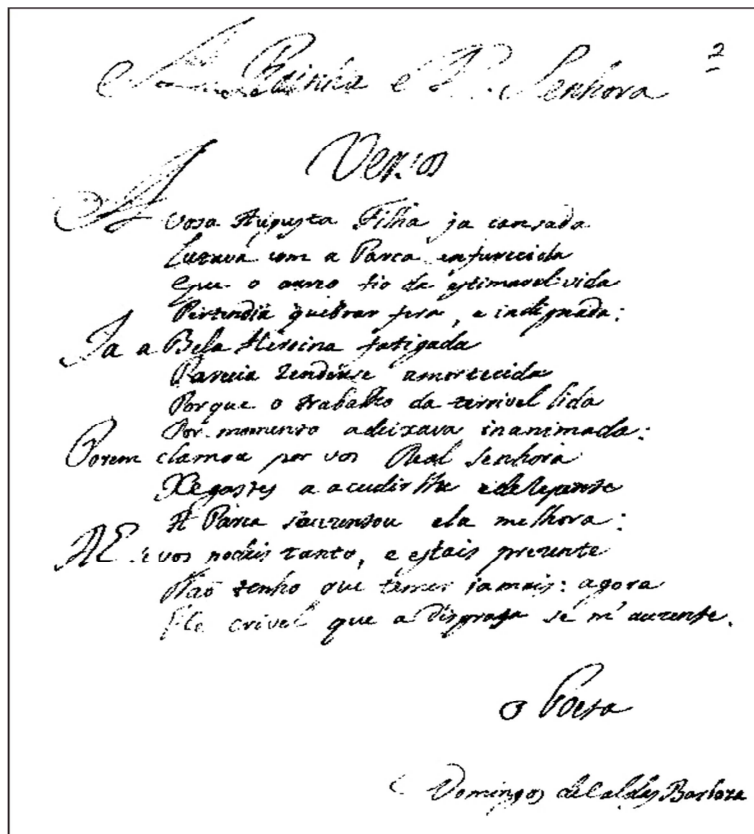 A Rainha e N. Senhora
2
Versos
A vosa Augusta Filha ja cansada
Lutava com a Parca enfurecida
Que o aureo fio da estimavel vida
Pertendia quebrar fera, e indignada:
Ja a Bela Heroina fatigada
Parecia rendêrse amortecida
Porque o trabalho da terrivel lida
Por momento a deixava inanimada:
Porem clamou por vos Real Senhora
Xegastes a acudirlhe e de repente
A Parca s'auzentou ela melhora:
Ah vos podeis tanto, e estais prezente
Não tenho que temer jamais: agora
He crivel que a Disgraça se m'auzente.
O Poeta
Domingos de Caldas Barboza